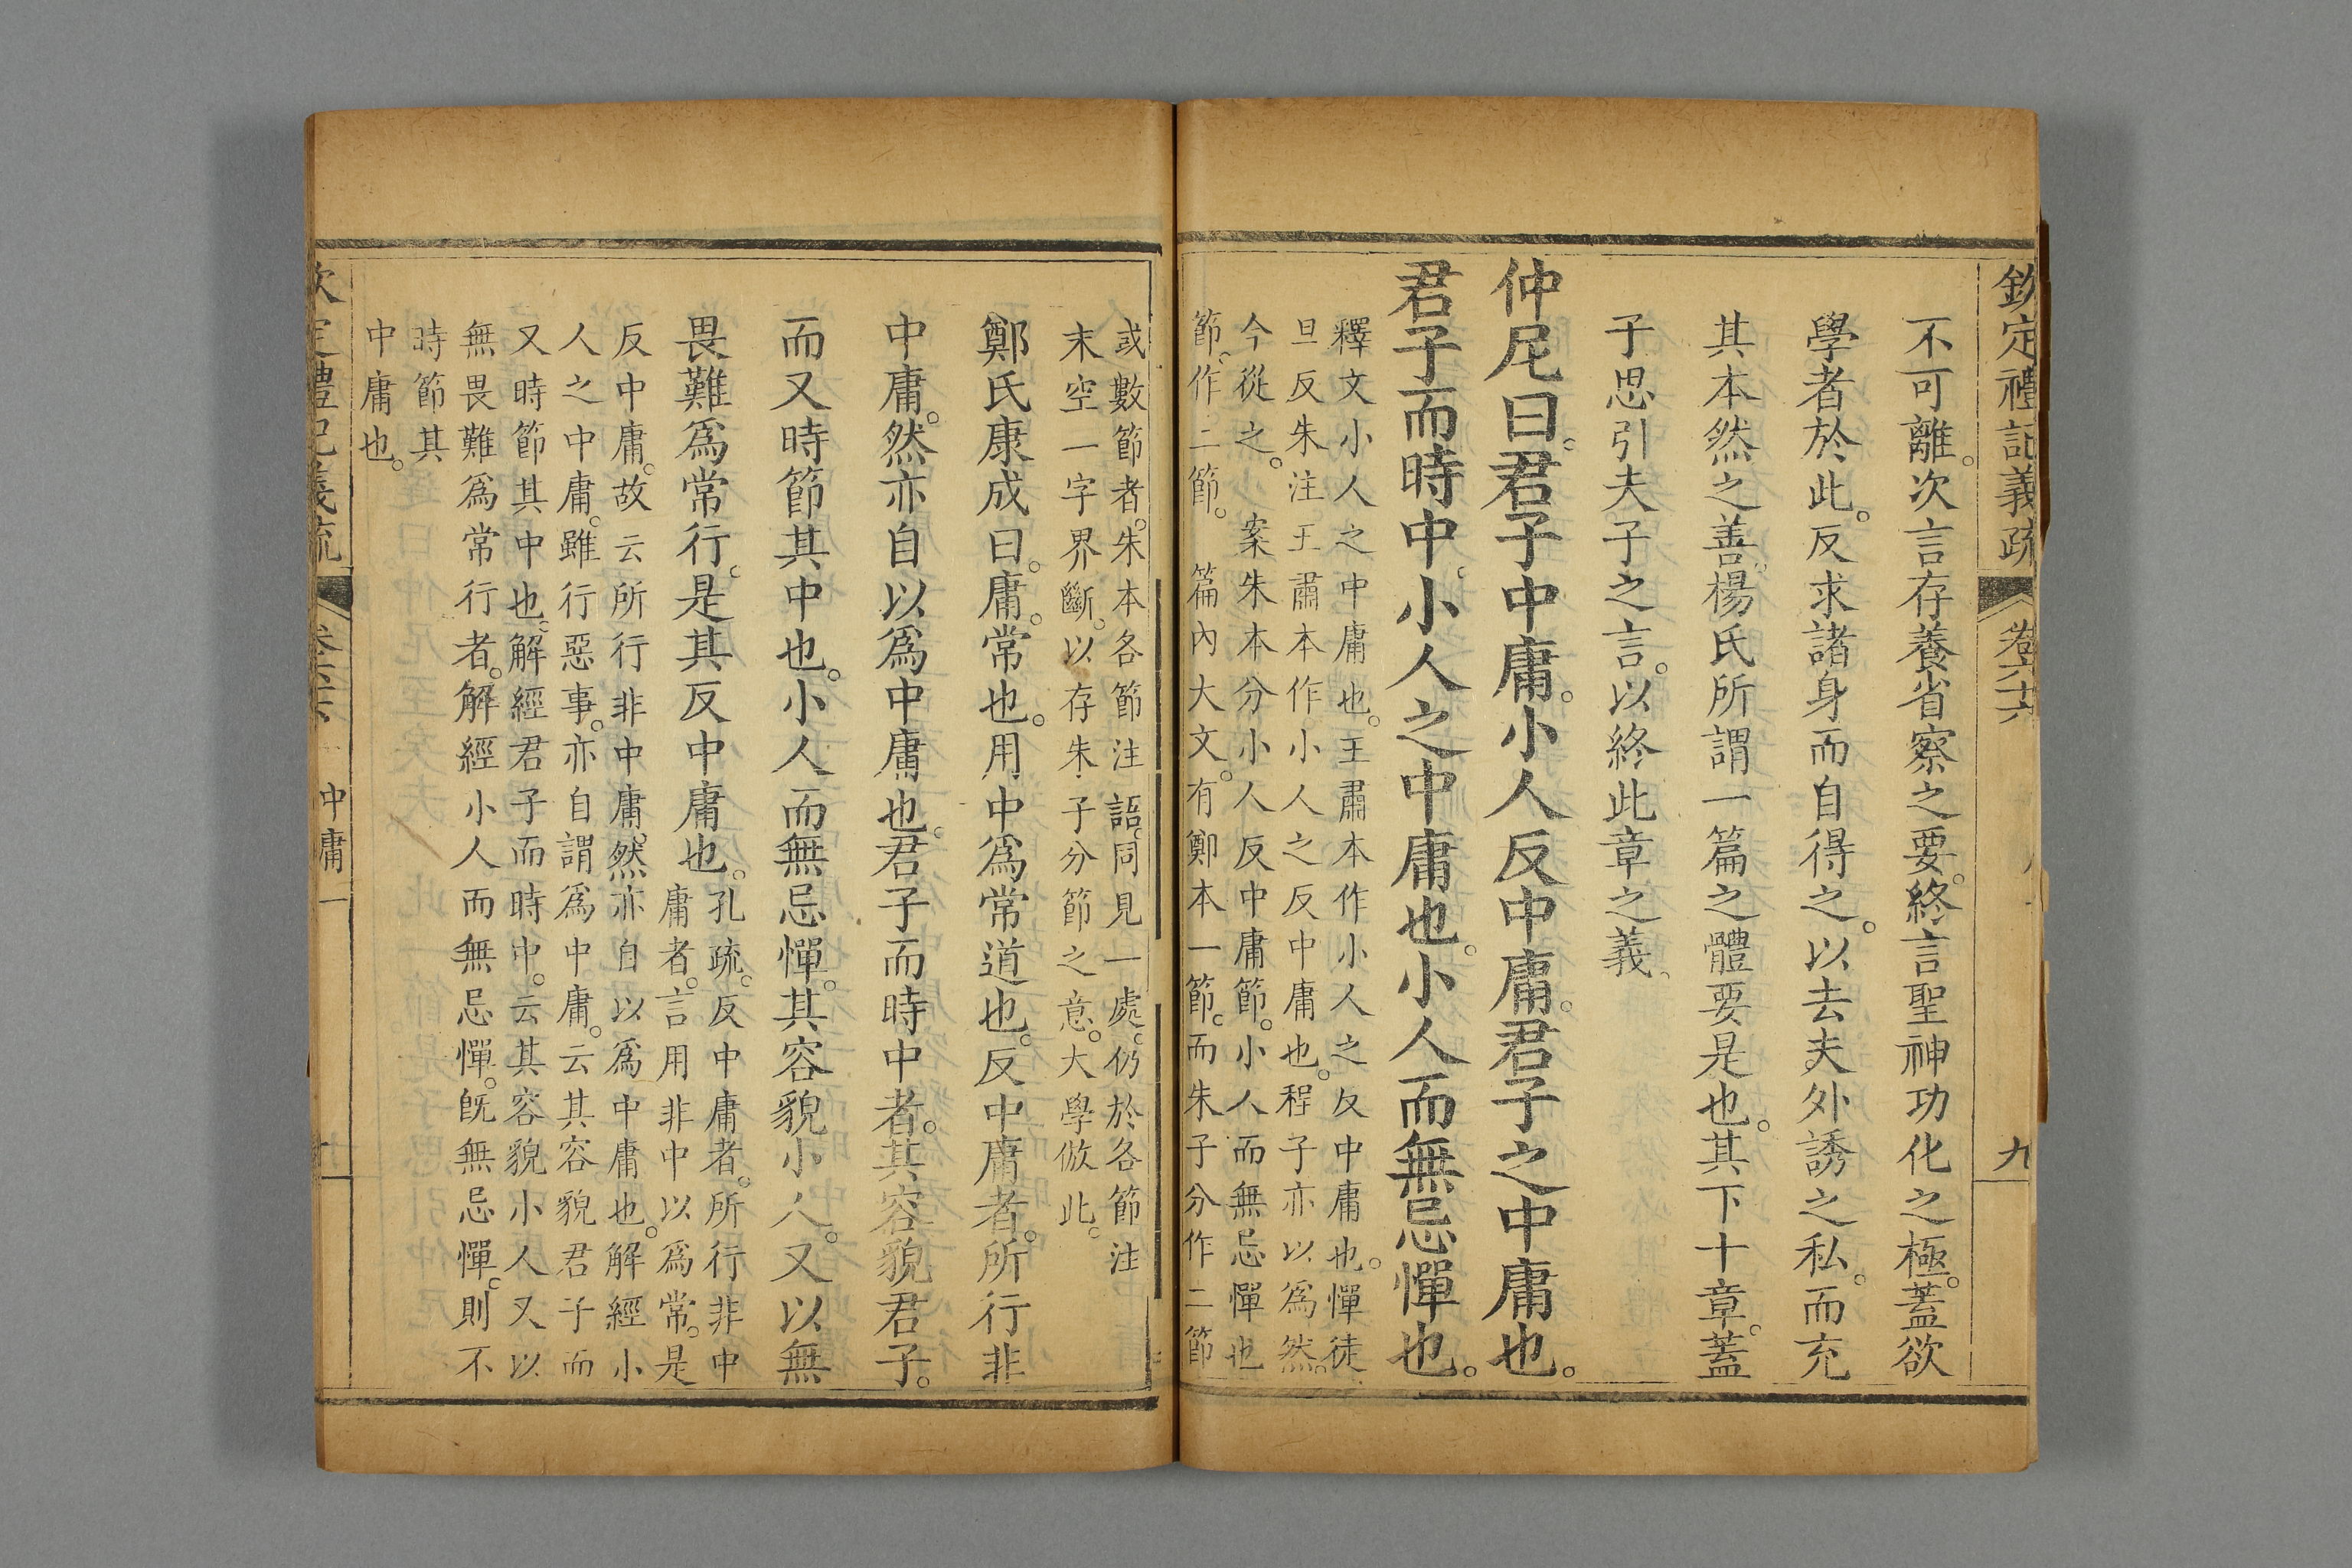 欽定禮記義疏 卷六十六 九
不可離。次言存養省察之要。終言聖神功化之極。蓋欲
學者於此。反求諸身而自得之。以去夫外誘之私。而充
其本然之善。楊氏所謂一篇之體要是也。其下十章。蓋
子思引夫子之言。以終此章之義。
仲尼曰。君子中庸。小人反中庸。君子之中庸也。
君子而時中。小人之中庸也。小人而無忌憚也。
釋文小人之中庸也。王肅本作小人之反中庸也。憚徒
旦反朱注王肅本作。小人之反中庸也。程子亦以為然。
今從之。 案朱本分小人反中庸節。小人而無忌憚也
節。作二節。 篇內大文。有鄭本一節。而朱子分作二節
或數節者。朱本各節注語。同見一處。仍於各節注
末空一字界斷。以存朱子分節之意。大學倣此。
鄭氏康成曰。庸。常也。用中為常道也。反中庸者。所行非
中庸。然亦自以為中庸也。君子而時中者。其容貌君子。
而又時節其中也。小人而無忌憚。其容貌小人。又以無
畏難為常行。是其反中庸也。
孔疏。反中庸者。所行非中
庸者。言用非中以為常。是
反中庸。故云所行非中庸。然亦自以為中庸也。解經小
人之中庸。雖行惡事。亦自謂為中庸。云其容貌君子而
又時節其中也。解經君子而時中。云其容貌小人又以
無畏難為常行者。解經小人而無忌憚。既無忌憚。則不
時節其
中庸也。
定禮記義疏 中庸一